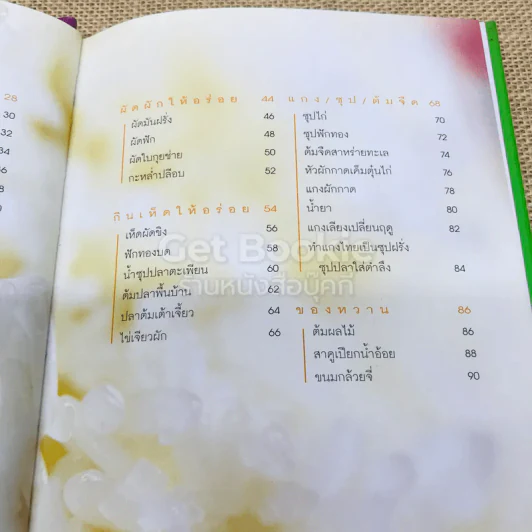 28
30
32
34
ผัดผักให้อร่อย 44
ผัดมันฝรั่ง 46
ผัดฟัก 48
ผัดใบกุยช่าย 50
กะหล่ำปลีอบ 52
กินเห็ดให้อร่อย 54
เห็ดผัดขิง 56
ฟักทองบด 58
น้ำซุปปลาตะเพียน 60
ต้มปลาพื้นบ้าน 62
ปลาต้มเต้าเจี้ยว 64
ไข่เจียวผัก 66
แกง/ซุป/ต้มจืด 68
ซุปไก่ 70
ซุปฟักทอง 72
ต้มจืดสาหร่ายทะเล 74
หัวผักกาดเค็มตุ๋นไก่ 76
แกงผักกาด 78
น้ำยา 80
แกงเลียงเปลี่ยนฤดู 82
ทำแกงไทยเป็นซุปฝรั่ง
ซุปปลาใส่ตำลึง 84
ของหวาน 86
ต้มผลไม้ 86
สาคูเปียกน้ำอ้อย 88
ขนมกล้วยจี่ 90
Get Bookie
ร้านหนังสือบุ๊คกี้